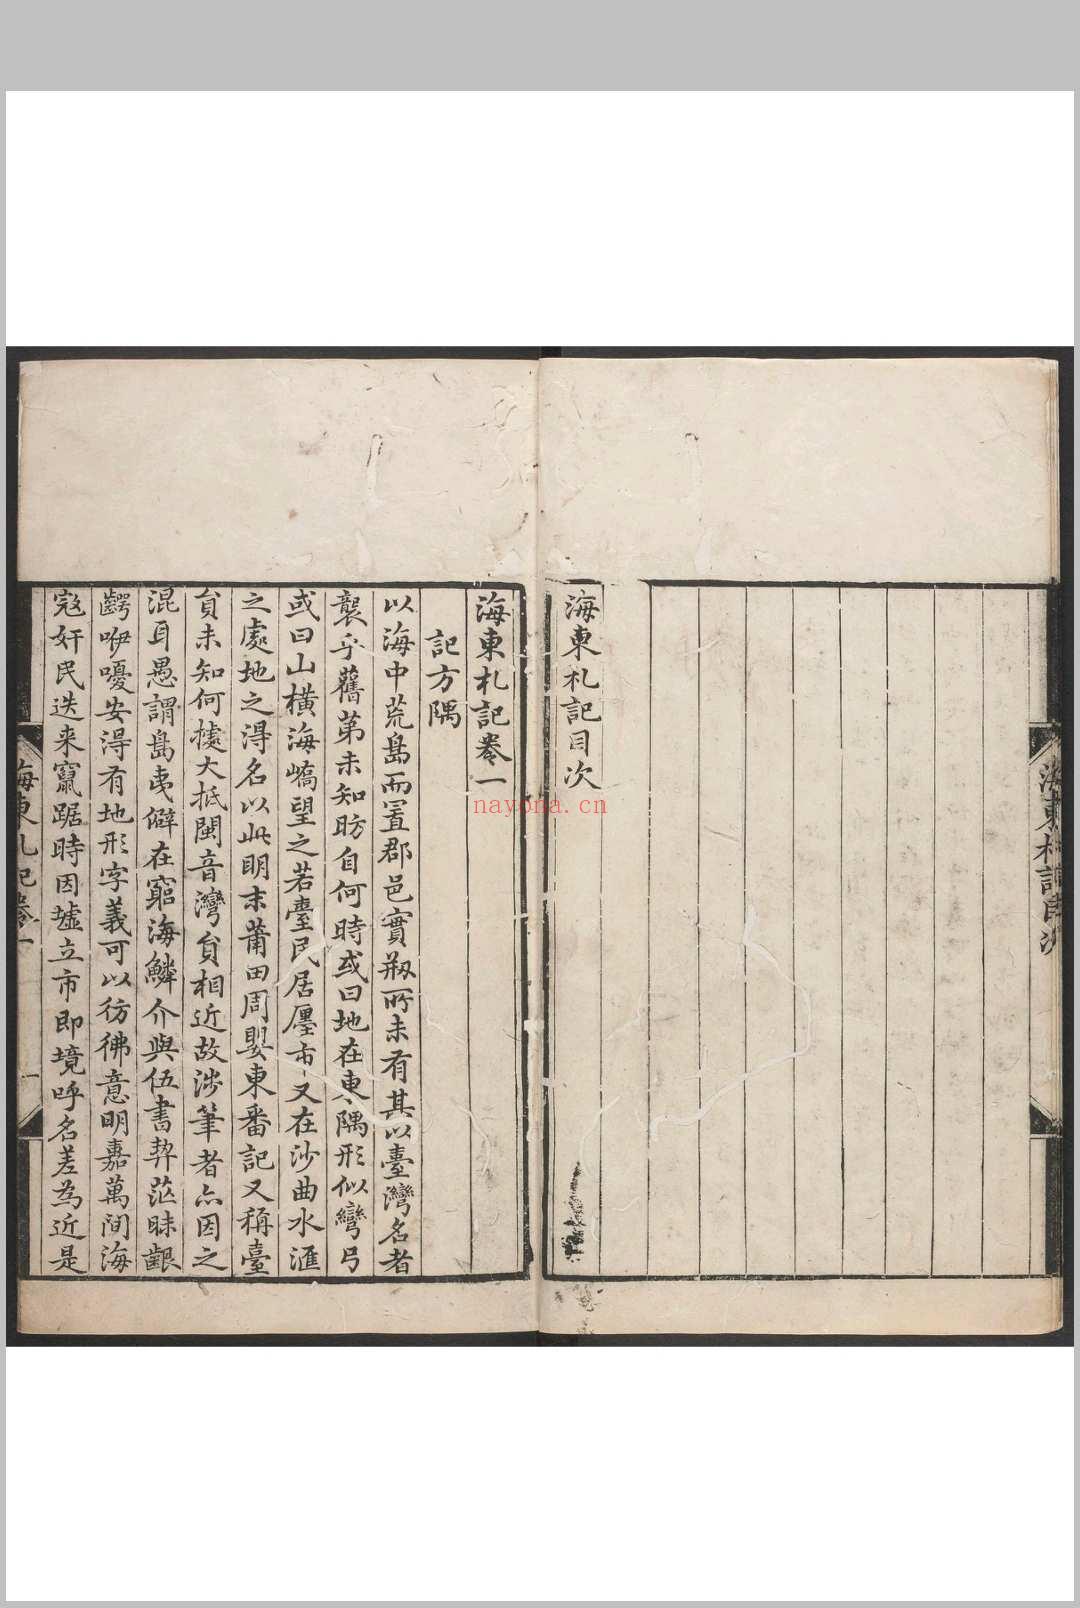 海東札記目次
海東札記卷一
記方隅
以海中荒島而置郡邑實刱所未有其以臺灣名者
襲乎舊第未知昉自何時或曰地在東隅形似彎弓
或曰山橫海嶠望之若臺民居廛市又在沙曲水滙
之處地之得名以此明末莆田周嬰東番記又稱臺
員未知何據大抵閩音灣員相近故涉筆者亦因之
混耳愚謂島夷僻在窮海鱗介與伍書契茫昧齦
齶咿嚘安得有地形字義可以彷彿意明嘉萬間海
寇奸民迭来竄踞時因墟立市即境呼名差為近是
海東札記卷一
一
海東札記目次
nayona.cn